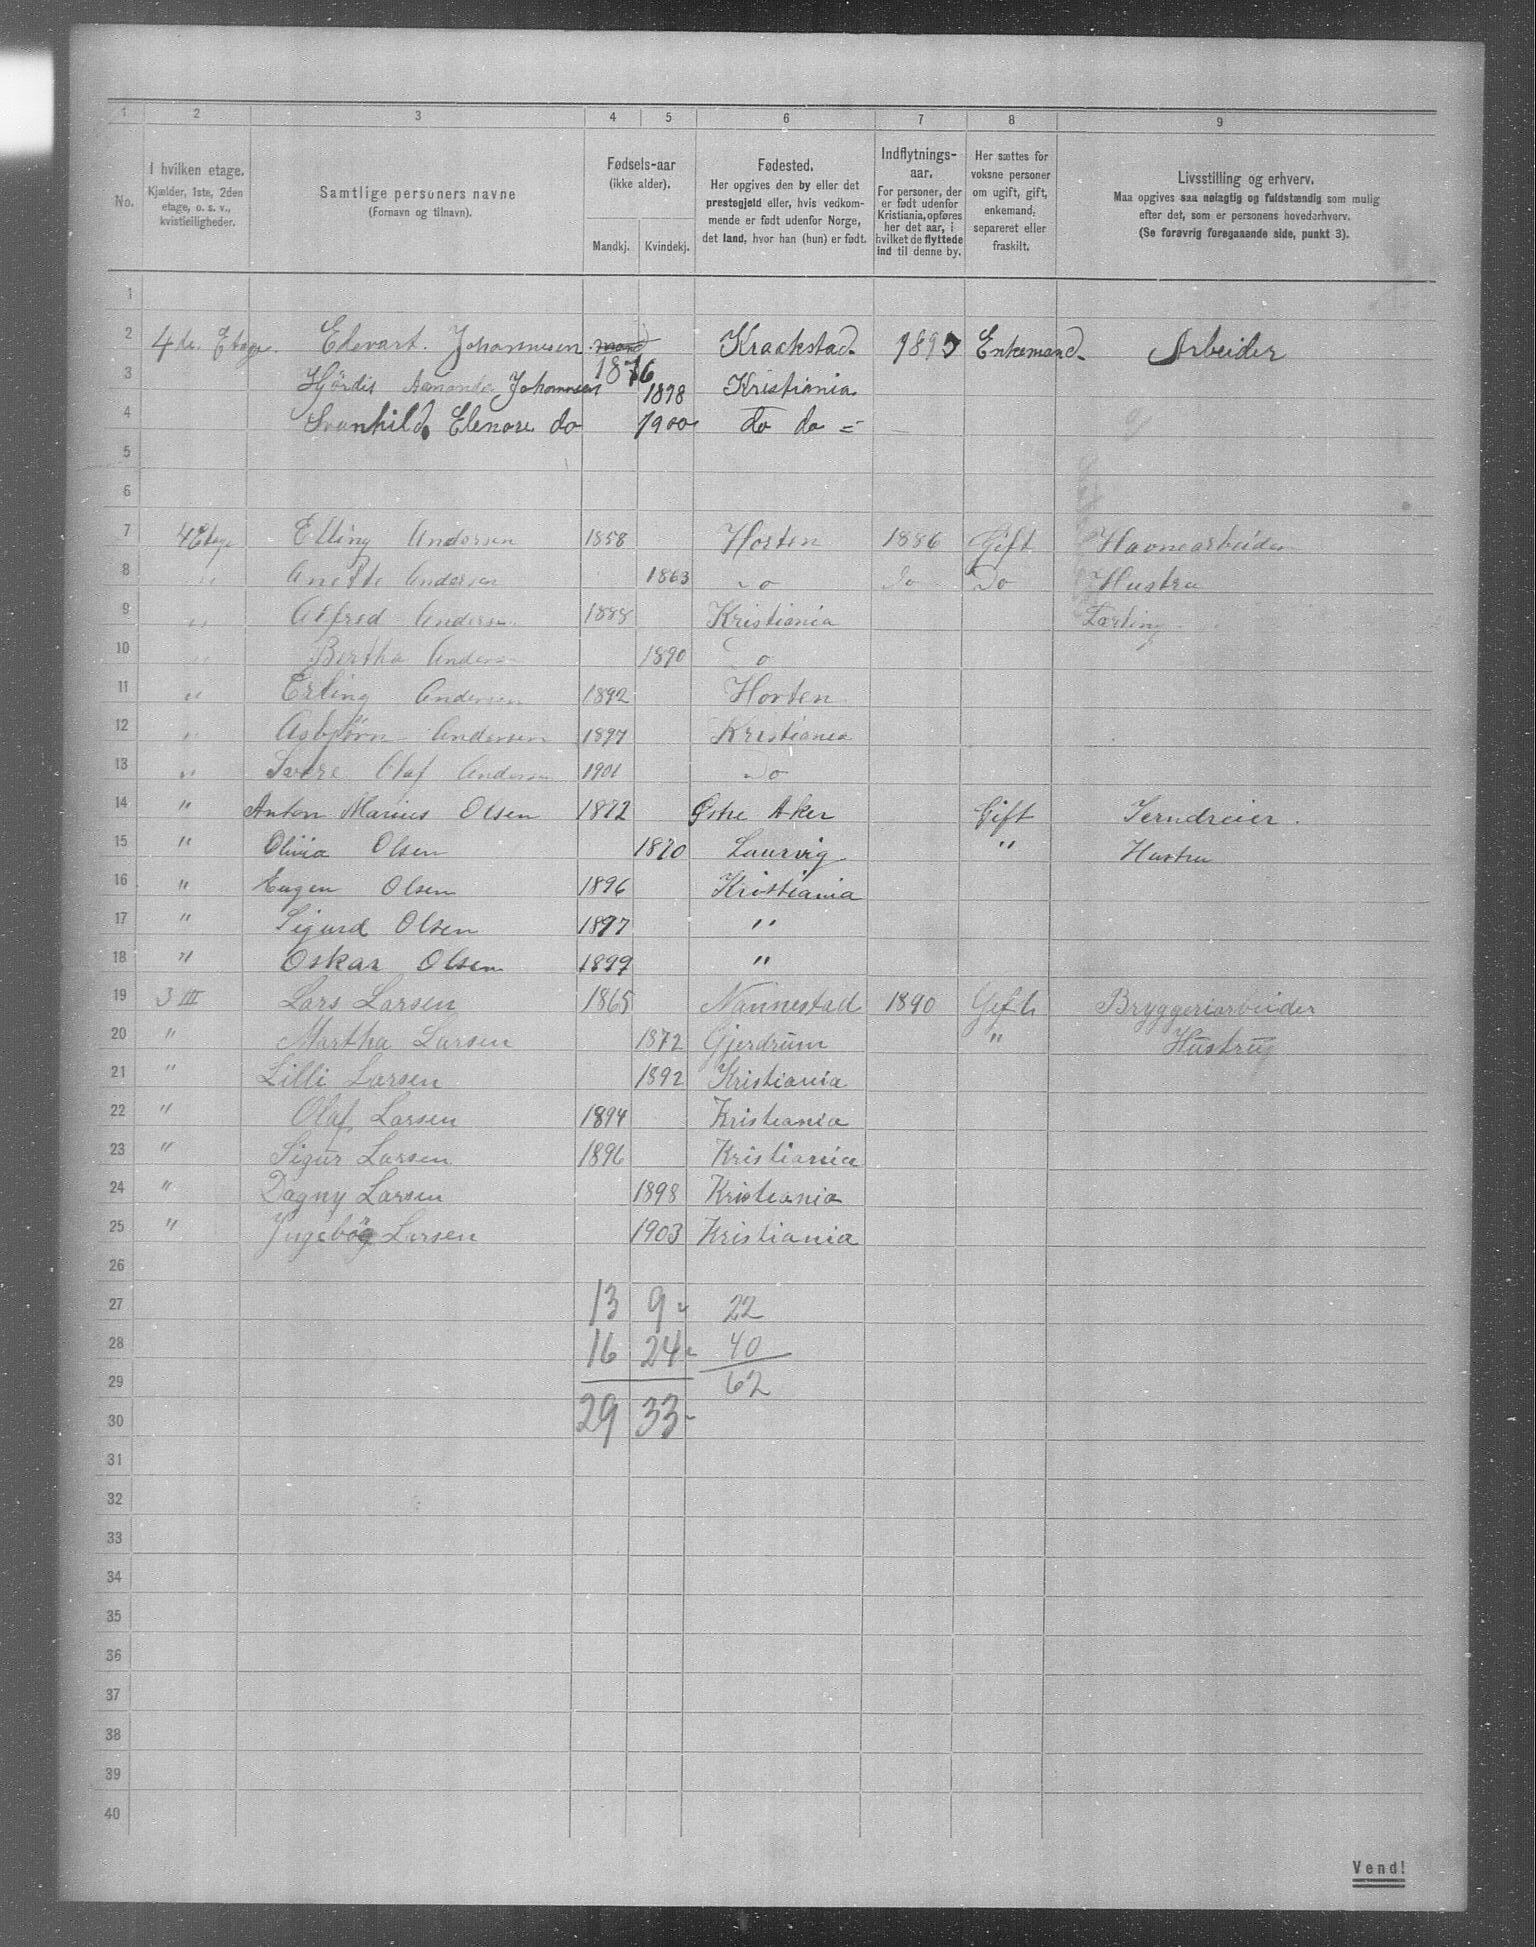 1 2 3 4 5 6 7 8 9
No. I hvilken etage. Kjælder, 1ste, 2den etage, o. s. v., kvistleiligheder.
Samtlige personers navne (Fornavn og tilnavn).
Fødsels-aar (ikke alder). Mandkj. Kvindekj.
Fødested. Her opgives den by eller det prestegjeld eller, hvis vedkommende er født udenfor Norge, det land, hvor han (hun) er født.
Indflytnings-aar. For personer, der er født udenfor Kristiania, opføres her det aar, i hvilket de flyttede ind til denne by.
Her sættes for voksne personer om ugift, gift, enkemand, separeret eller fraskilt.
Livsstilling og erhverv. Maa opgives saa nøiagtig og fuldstændig som mulig efter det, som er personens hovederhverv. (Se forøvrig foregaaende side, punkt 3).
1
2 4de. Etage. Edevart. Johannesen mand 1876 Kraakstad. 1895 Enkemand. Arbeider
3 Hjördis Amanda Johannesen 1898 Kristiania
4 Svanhild Elenore do 1900 do do =
5
6
7 4 Etage Elling Andersen 1858 Horten 1886 Gift Havnearbeider
8 " Anette Andersen 1863 Do Do Do Hustru
9 " Alfred Andersen 1888 Kristiania
10 " Bertha Anders 1890 Do
11 " Erling Andersen 1892 Horten
12 " Asbjørn Andersen 1897 Kristiania
13 " Sverre Olaf Andersen 1901 Do
14 " Anton Marius Olsen 1872 Østre Aker Gift Jerndreier.
15 " Olivia Olsen 1870 Laurvig " Hustru
16 " Eugen Olsen 1896 Kristiania
17 " Sigurd Olsen 1897 "
18 " Oskar Olsen 1899 "
19 3 III Lars Larsen 1865 Nannestad 1890 Gift Bryggeriarbeider
20 " Martha Larsen 1872 Gjerdrum " Hustrug
21 " Lilli Larsen 1892 Kristiania
22 " Olaf Larsen 1894 Kristiania
23 " Sigur Larsen 1896 Kristiania
24 " Dagny Larsen 1898 Kristiania
25 " Ingebög Larsen 1903 Kristiania
26
27 13 9 22
28 16 24 40
29 62
30 29 33
31
32
33
34
35
36
37
38
39
40
Vend!